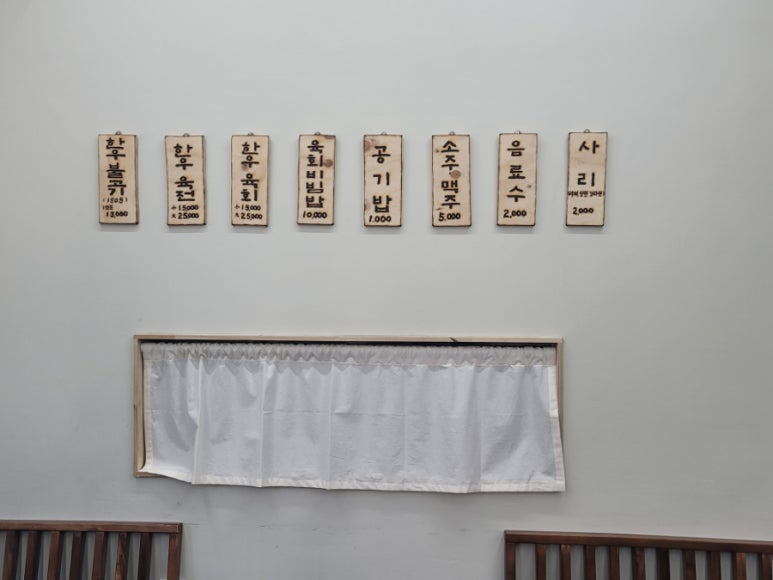 한우불고기
(150g)
13,000
한우육전
小 15,000
大 25,000
한우육회
小 15,000
大 25,000
육회비빔밥
10,000
공기밥
1,000
소주맥주
5,000
음료수
2,000
사리
2,000